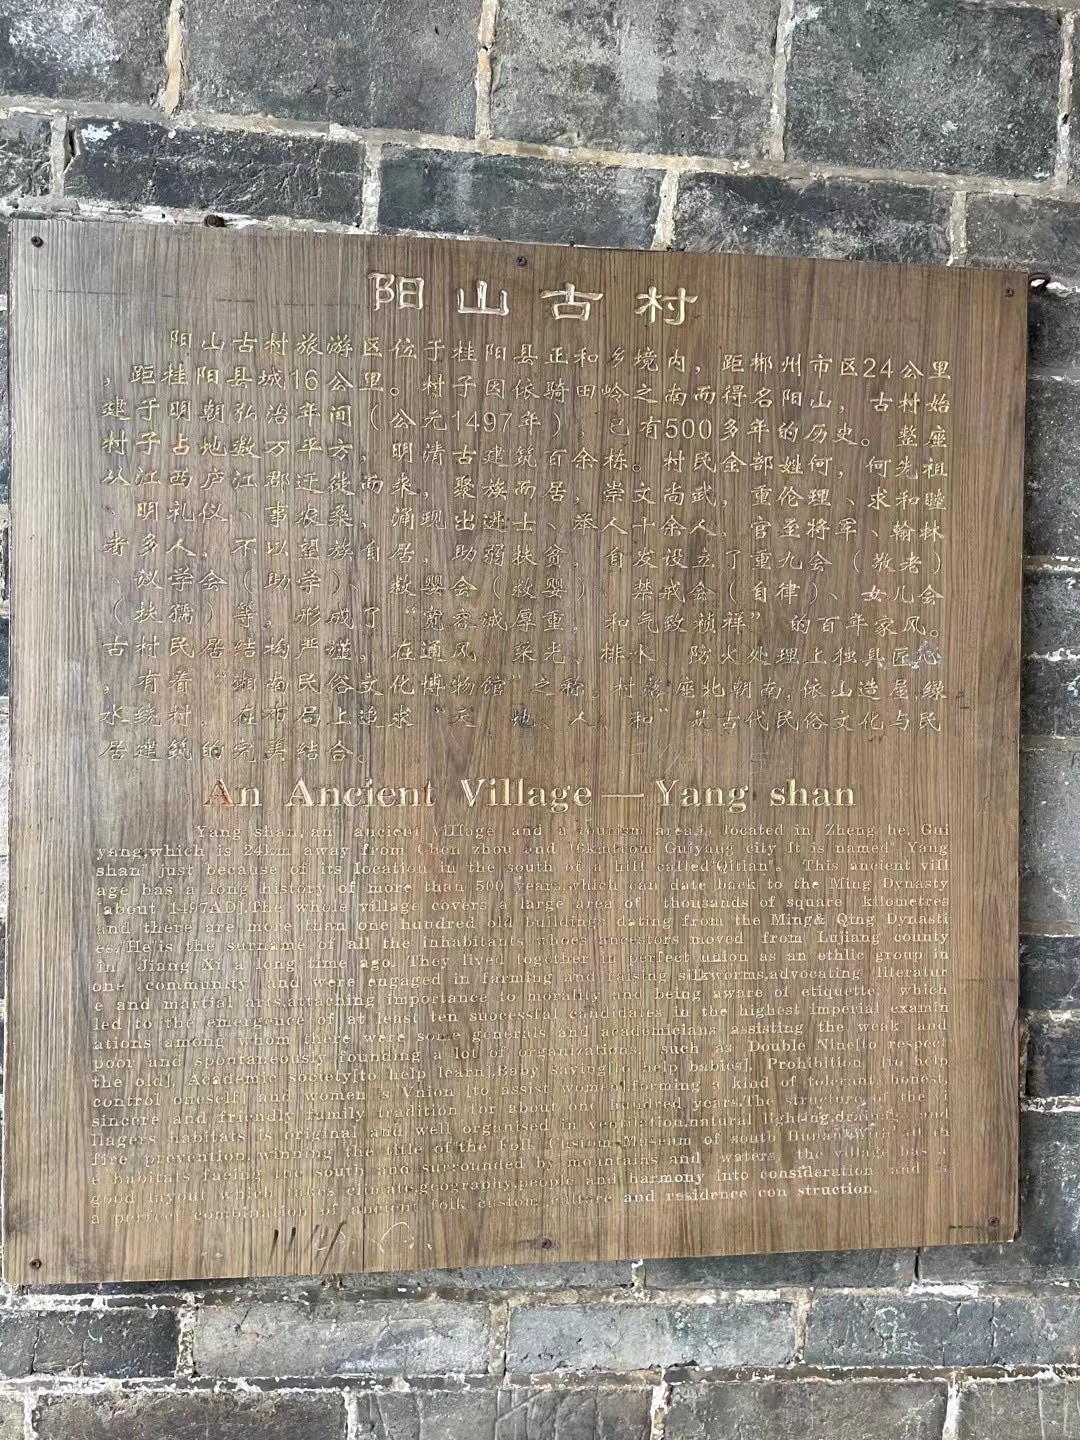 阳山古村
阳山古村旅游区位于桂阳县正和乡境内，距郴州市区24公里
，距桂阳县城16公里。村子因依骑田岭之南而得名阳山，古村始
建于明朝弘治年间（公元1497年），已有500多年的历史。整座
村子占地数万平方，明清古建筑百余栋。村民全部姓何，何先祖
从江西庐江郡迁徙而来，聚族而居，崇文尚武，重伦理、求和睦
、明礼仪、事农桑，涌现出进士、举人十余人，官至将军、翰林
者多人，不以望族自居，助弱扶贫，自发设立了重九会（敬老）
、议学会（助学）、救婴会（救婴）、禁戒会（自律）、女儿会
（扶孺）等，形成了“宽容诚厚重，和气致祯祥”的百年家风。
古村民居结构严谨，在通风、采光、排水、防火处理上独具匠心
，有着“湘南民俗文化博物馆”之称。村 座北朝南，依山造屋，绿
水绕村，在布局上追求“天、地、人、和”是古代民俗文化与民
居建筑的完美结合。
An Ancient Village—Yang shan
Yang shan,an ancient village and a tourism area,is located in Zheng he, Gui
yang,which is 24km away from Chen zhou and 16kmfrom Guiyang city It is named" Yang
shan" just because of its location in the south of a hill called"Qitian". This ancient vill
age has a long history of more than 500 years,which can date back to the Ming Dynasty
[about 1497AD].The whole village covers a large area of thousands of square kilometres
and there are more than one hundred old buildings dating from the Ming& Qing Dynasti
es. He is the surname of all the inhabitants whoes ancestors moved from Lujiang county
in Jiang Xi a long time ago. They lived together in perfect union as an ethlic group in
one community and were engaged in farming and raising silkworms,advocating literatur
e and martial arts,attaching importance to morality and being aware of etiquette, which
led to the emergence of at least ten successful candidates in the highest imperial examin
ations among whom there were some generals and academicians assisting the weak and
poor and spontaneously founding a lot of organizations, such as Double Nine[to respect
the old], Academic society[to help learn],Baby saving[to help babies], Prohibition [to help
control oneself] and women 's Vnion [to assist women],forming a kind of tolerant,honest,
sincere and friendly family tradition for about one hundred years.The structure of the vi
llagers habitats is original and well organised in ventilation,natural lighting,draining and
fire prevention,winning the title of"the Folk Custom Museum of south Hunan".
e habitats facing the south and surrounded by mountains and waters, the village has a
good layout which takes climate,geography,people and harmony into consideration and is
a perfect combination of ancient folk custom and residence con struction.